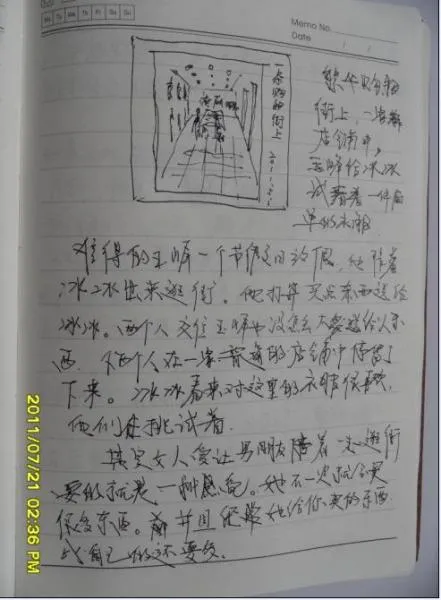 Mo Tu We Th Fr Sa Su
Memo No.
Date / /
一条购物街上
2011.7.21
繁华购物
街上,一法辩
店铺中,
王峰给冰冰
试着一件
单的衣服
难得的王峰一个节假日放假,他陪着
冰冰出来逛街。他打算买点东西送给
冰冰。两个人交往王峰也没怎么送给人东
西。两个人在一家普通的店铺中停留了
下来。冰冰看来对这里的衣服很喜欢,
他们在挑试着
其实女人爱让男朋友陪着一起逛街
要的就是一种感觉。她不一定就会买
很多东西。并且她给你买的东西
比自己的还要多。
2011/07/21 02:36 PM